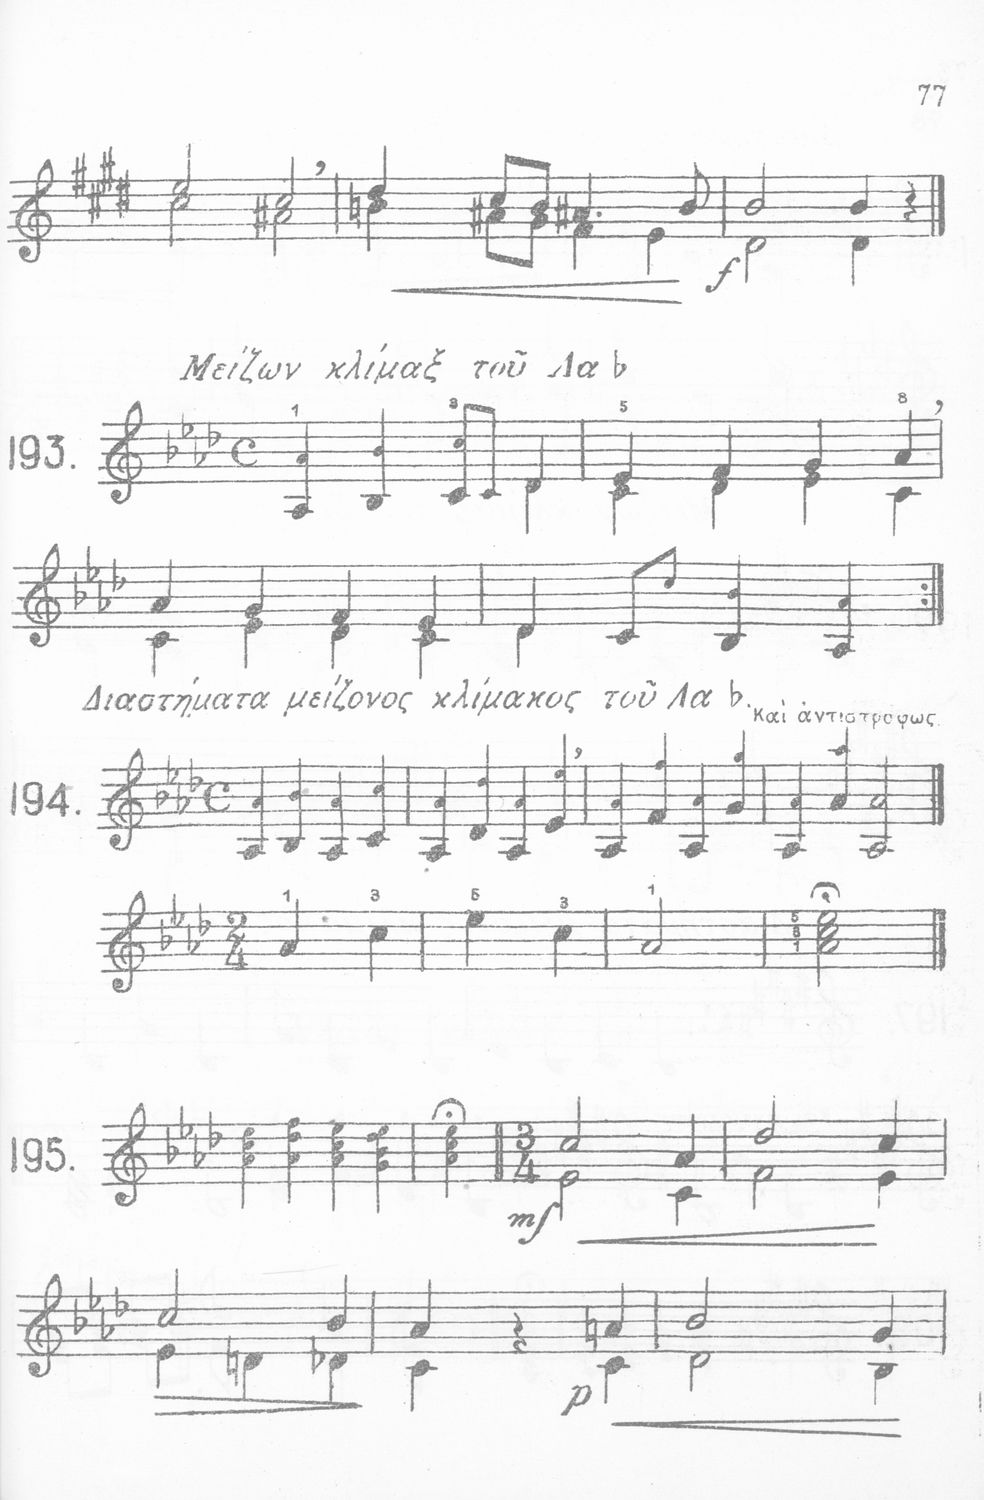 77
f
Μείζων κλίμαξ τοῦ Λα ♭
193.
1 3 5 8
Διαστήματα μείζονος κλίμακος τοῦ Λα ♭.
Καὶ ἀντιστρόφως.
194.
1 3 5 3 1 5 3 1
2 4
195.
3 4
mf
p